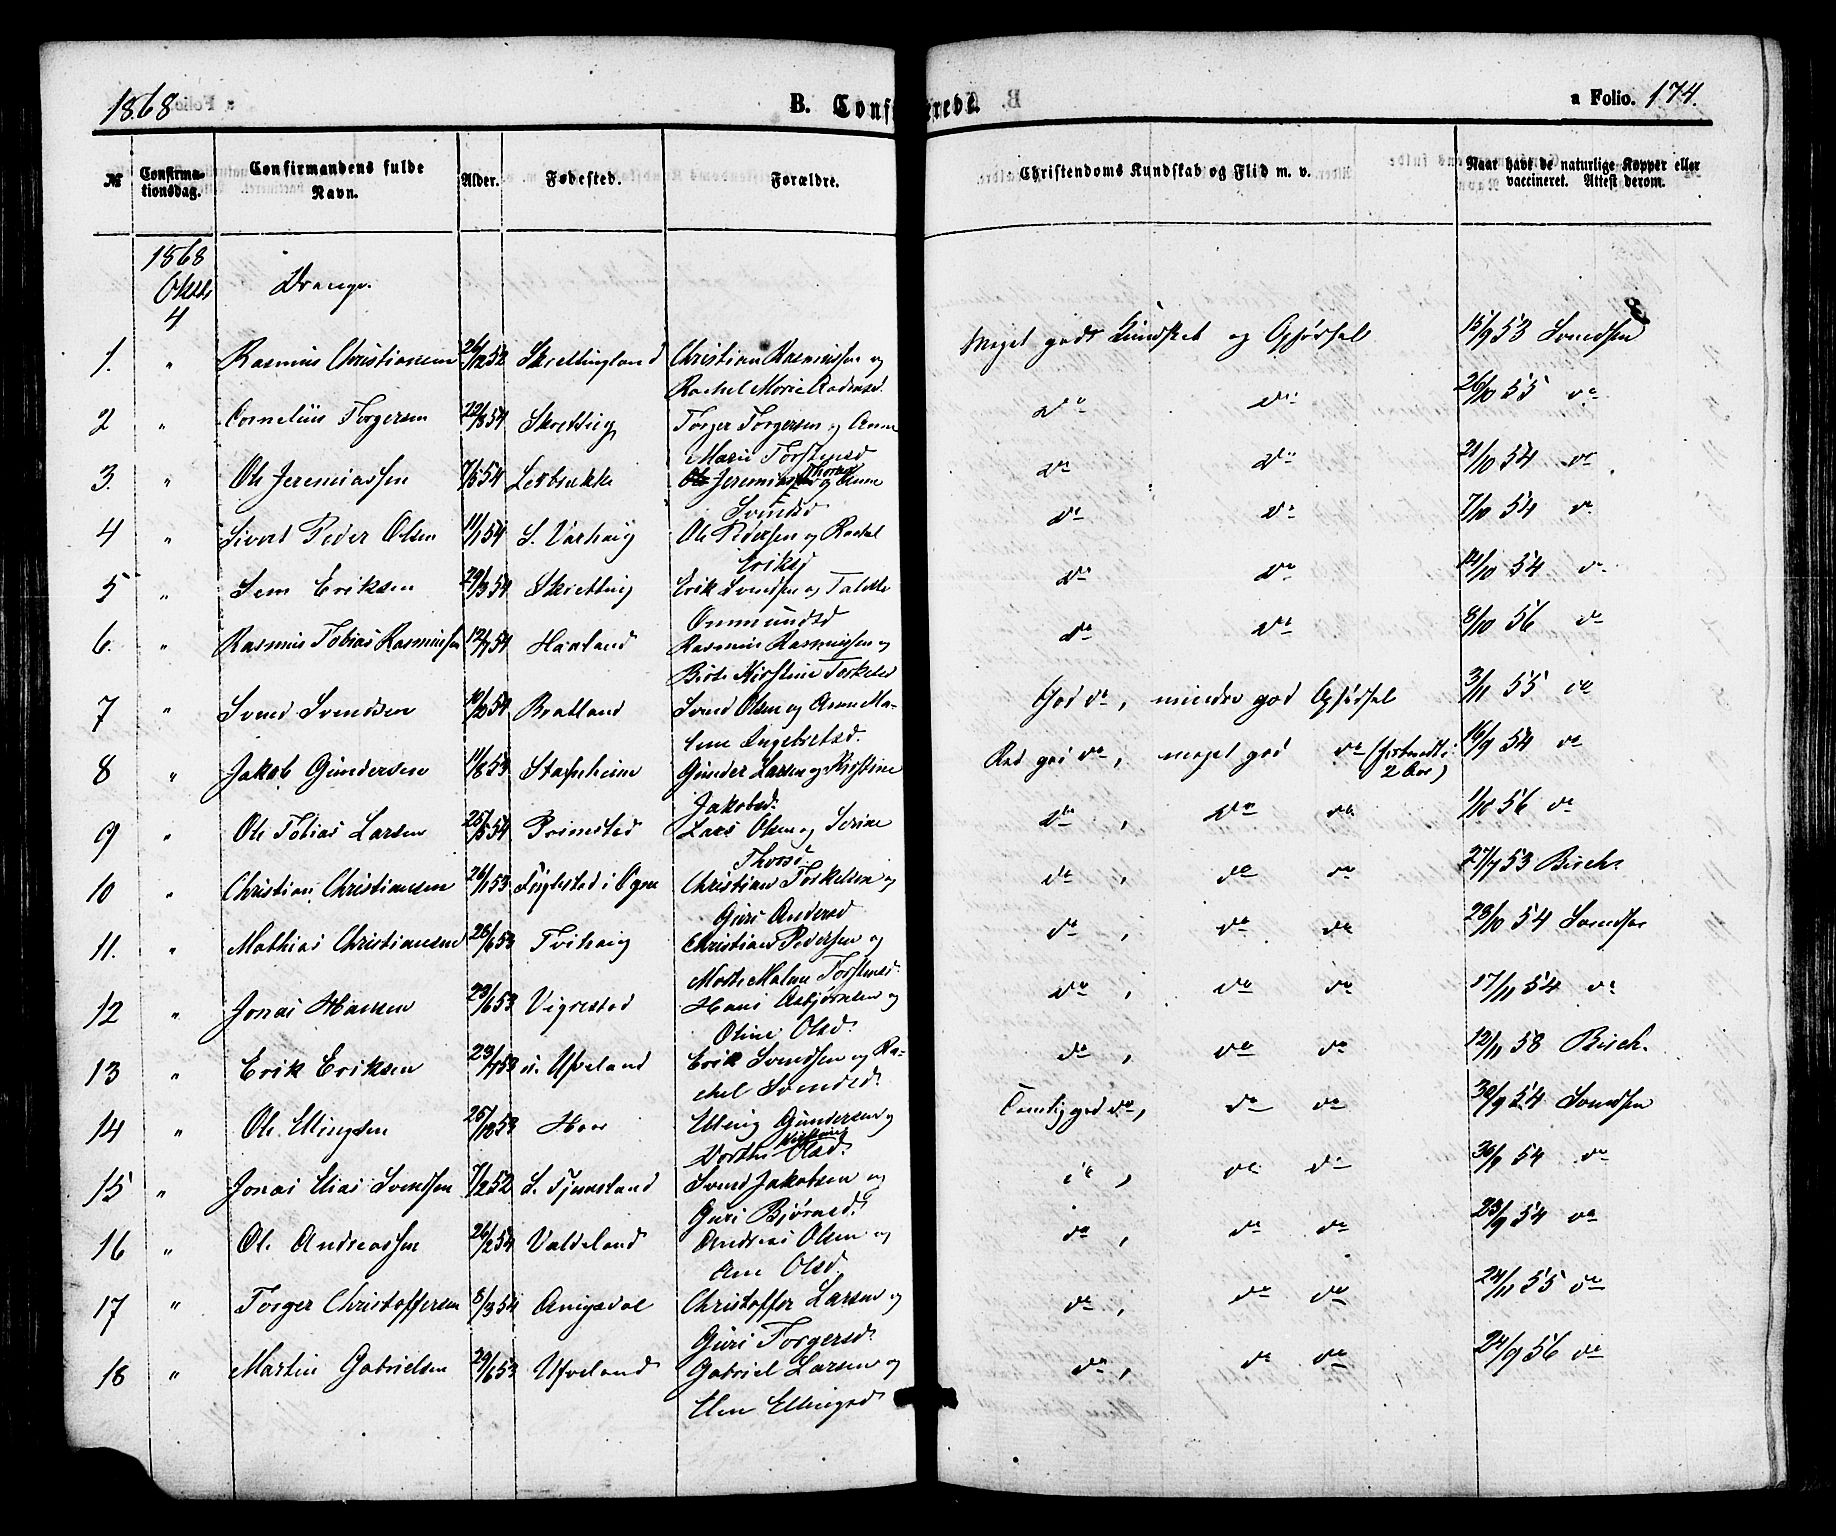 1868 B. Conf rede. a Folio. 174.
№ Confirmationsdag. Confirmandens fulde Navn. Alder. Fødested. Forældre. Christendoms Kundskab og Flid m. v. Naar havt de naturlige Kopper eller vaccineret. Attest derom.
1868
Oktbr
4 Drenge.
1. " Rasmus Christiansen 24/12 52 Christian Rasmussen og Meget god Kundskab og Opførsel 15/9 53 Svendsen
Rachel Marie
2 " Cornelius Torgersen 22/8 54 Skretting Torger Torgersen og Anne do do 26/10 55 do
Marie Torstensd
3. " Ole Jeremiassen 7/5 54 Jeremias og Anne do do 21/10 54 do
Svendsd
4 " Sivert Peder Olsen 11/1 54 S. Varhaug Ole Pedersen og Rachel do do 7/10 54 do
Eriksd
5 " Sem Eriksen 29/3 54 Skretting Erik Svendsen og do do 14/10 54 do
Ommundsd
6. " Rasmus Tobias Rasmussen 12/7 54 Haaland Rasmus Rasmussen og do do 8/10 56 do
Kirstine Torkelsd
7 " Svend Svendsen 10/10 54 Bratland Svend Olsen og Anne Ma- God do, mindre god Opførsel 3/11 55 do
lene Ingebretsd.
8 " Jakob Gundersen 11/8 53 Stafnheim Gunder Larsen og Kirstine meget god do 16/9 54 do
2 Aar)
Jakobsd.
9 " Ole Tobias Larsen 25/5 54 Primstad Lars Olsen og Serine do, do do 1/10 56 do
10 " Christian Christiansen 26/1 53 Fuglestad i Ogne Christian Torkelsen og do, do do 27/7 53 Birch.
Guri Andersd
11. " Mathias Christiansen 28/6 53 Tvihaug Christian Pedersen og do, do do 28/10 54 Svendsen
Malene Torstensd.
12 " Jonas Hansen 29/6 53 Vigrestad Hans Asbjørnsen og do, do do 17/11 54 do
Oline Olsd.
13 " Erik Eriksen 23/7 53 Ueland Erik Svendsen og Ra- do, do do 12/11 58 Birch.
chel Svendsd.
14 " Ole Ellingsen 25/10 53 Elling Gundersen og Temlig god do, do do 30/9 54 Svendsen
Olsd.
15 " Jonas Elias Svendsen 7/2 52 Svend Jakobsen og do, do do 30/9 54 do
Guri Bjørnsd.
16 " Ole Andreassen 26/2 54 Valdeland Andreas Olsen og do, do do 23/9 54 do
Ane Olsd.
17 " Torger Christoffersen 8/3 54 Christoffer Larsen og do, do do 24/11 55 do
Guri Torgersd.
18 " Martin Gabrielsen 29/6 53 Ueland Gabriel Larsen og do, do do 24/9 56 do
Elen Ellingsd